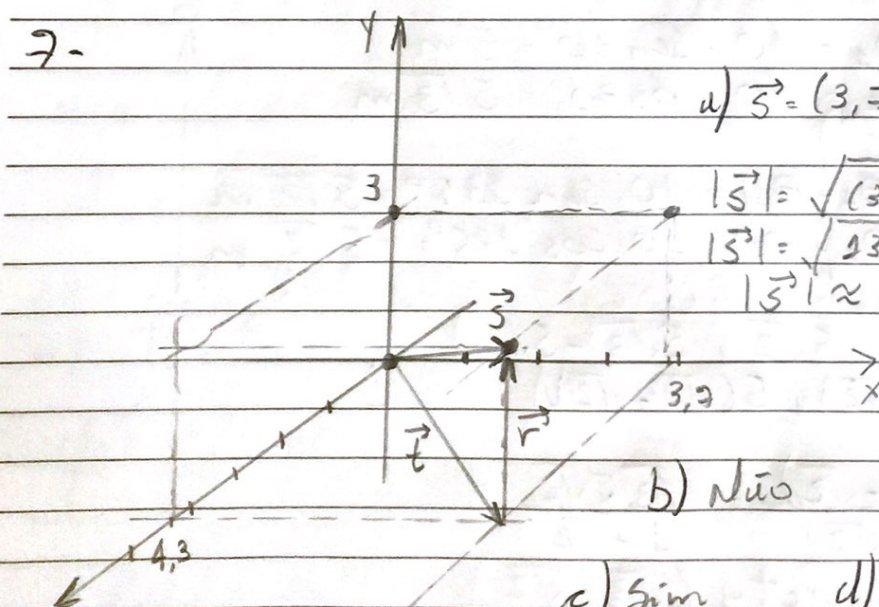 7-
Y
a) S = (3,7
3
|S| = √(3
|S| = √23
|S| ≈
S
3,7
x
t
r
b) Não
4,3
c) Sim d)